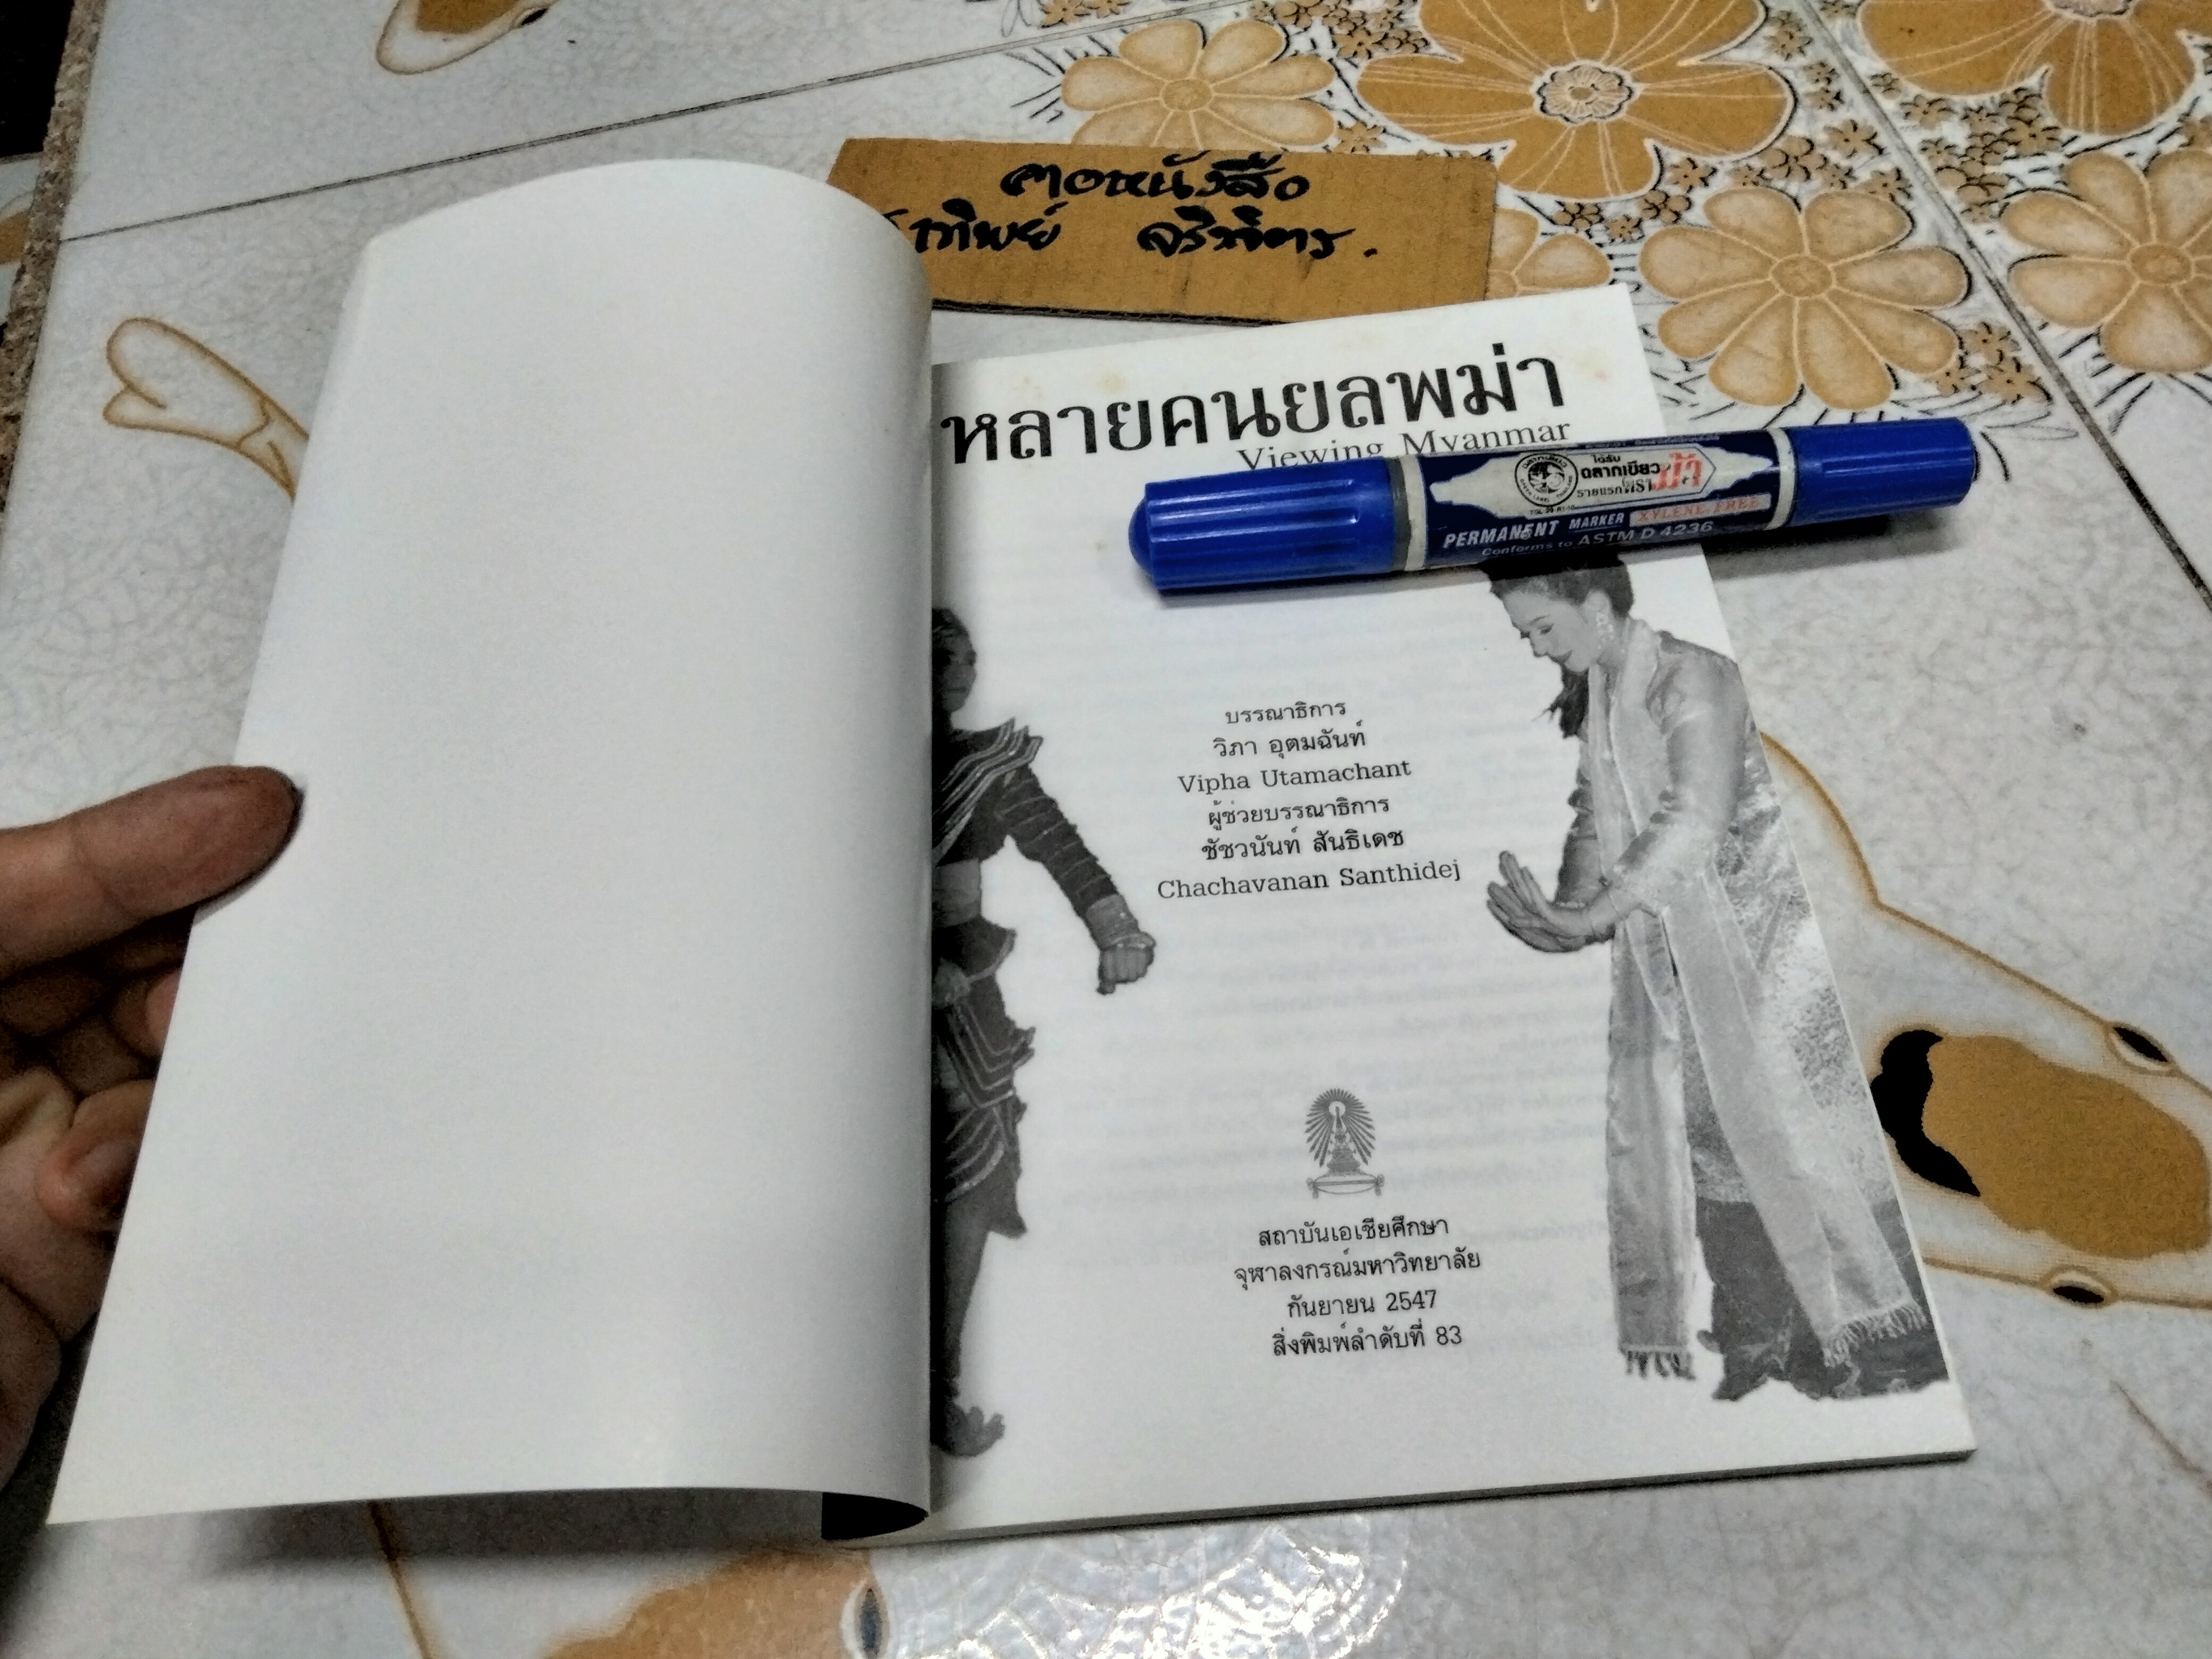 คอหนังสือ
ทิพย์
หลายคนยลพม่า
Viewing Myanmar
ได้รับ
ฉลากเขียว
รายแรก ตรา ม้า
PERMANENT MARKER XYLENE-FREE
Conforms to ASTM D 4236
บรรณาธิการ
วิภา อุตมฉันท์
Vipha Utamachant
ผู้ช่วยบรรณาธิการ
ชัชวนันท์ สันธิเดช
Chachavanan Santhidej
สถาบันเอเชียศึกษา
จุฬาลงกรณ์มหาวิทยาลัย
กันยายน 2547
สิ่งพิมพ์ลำดับที่ 83